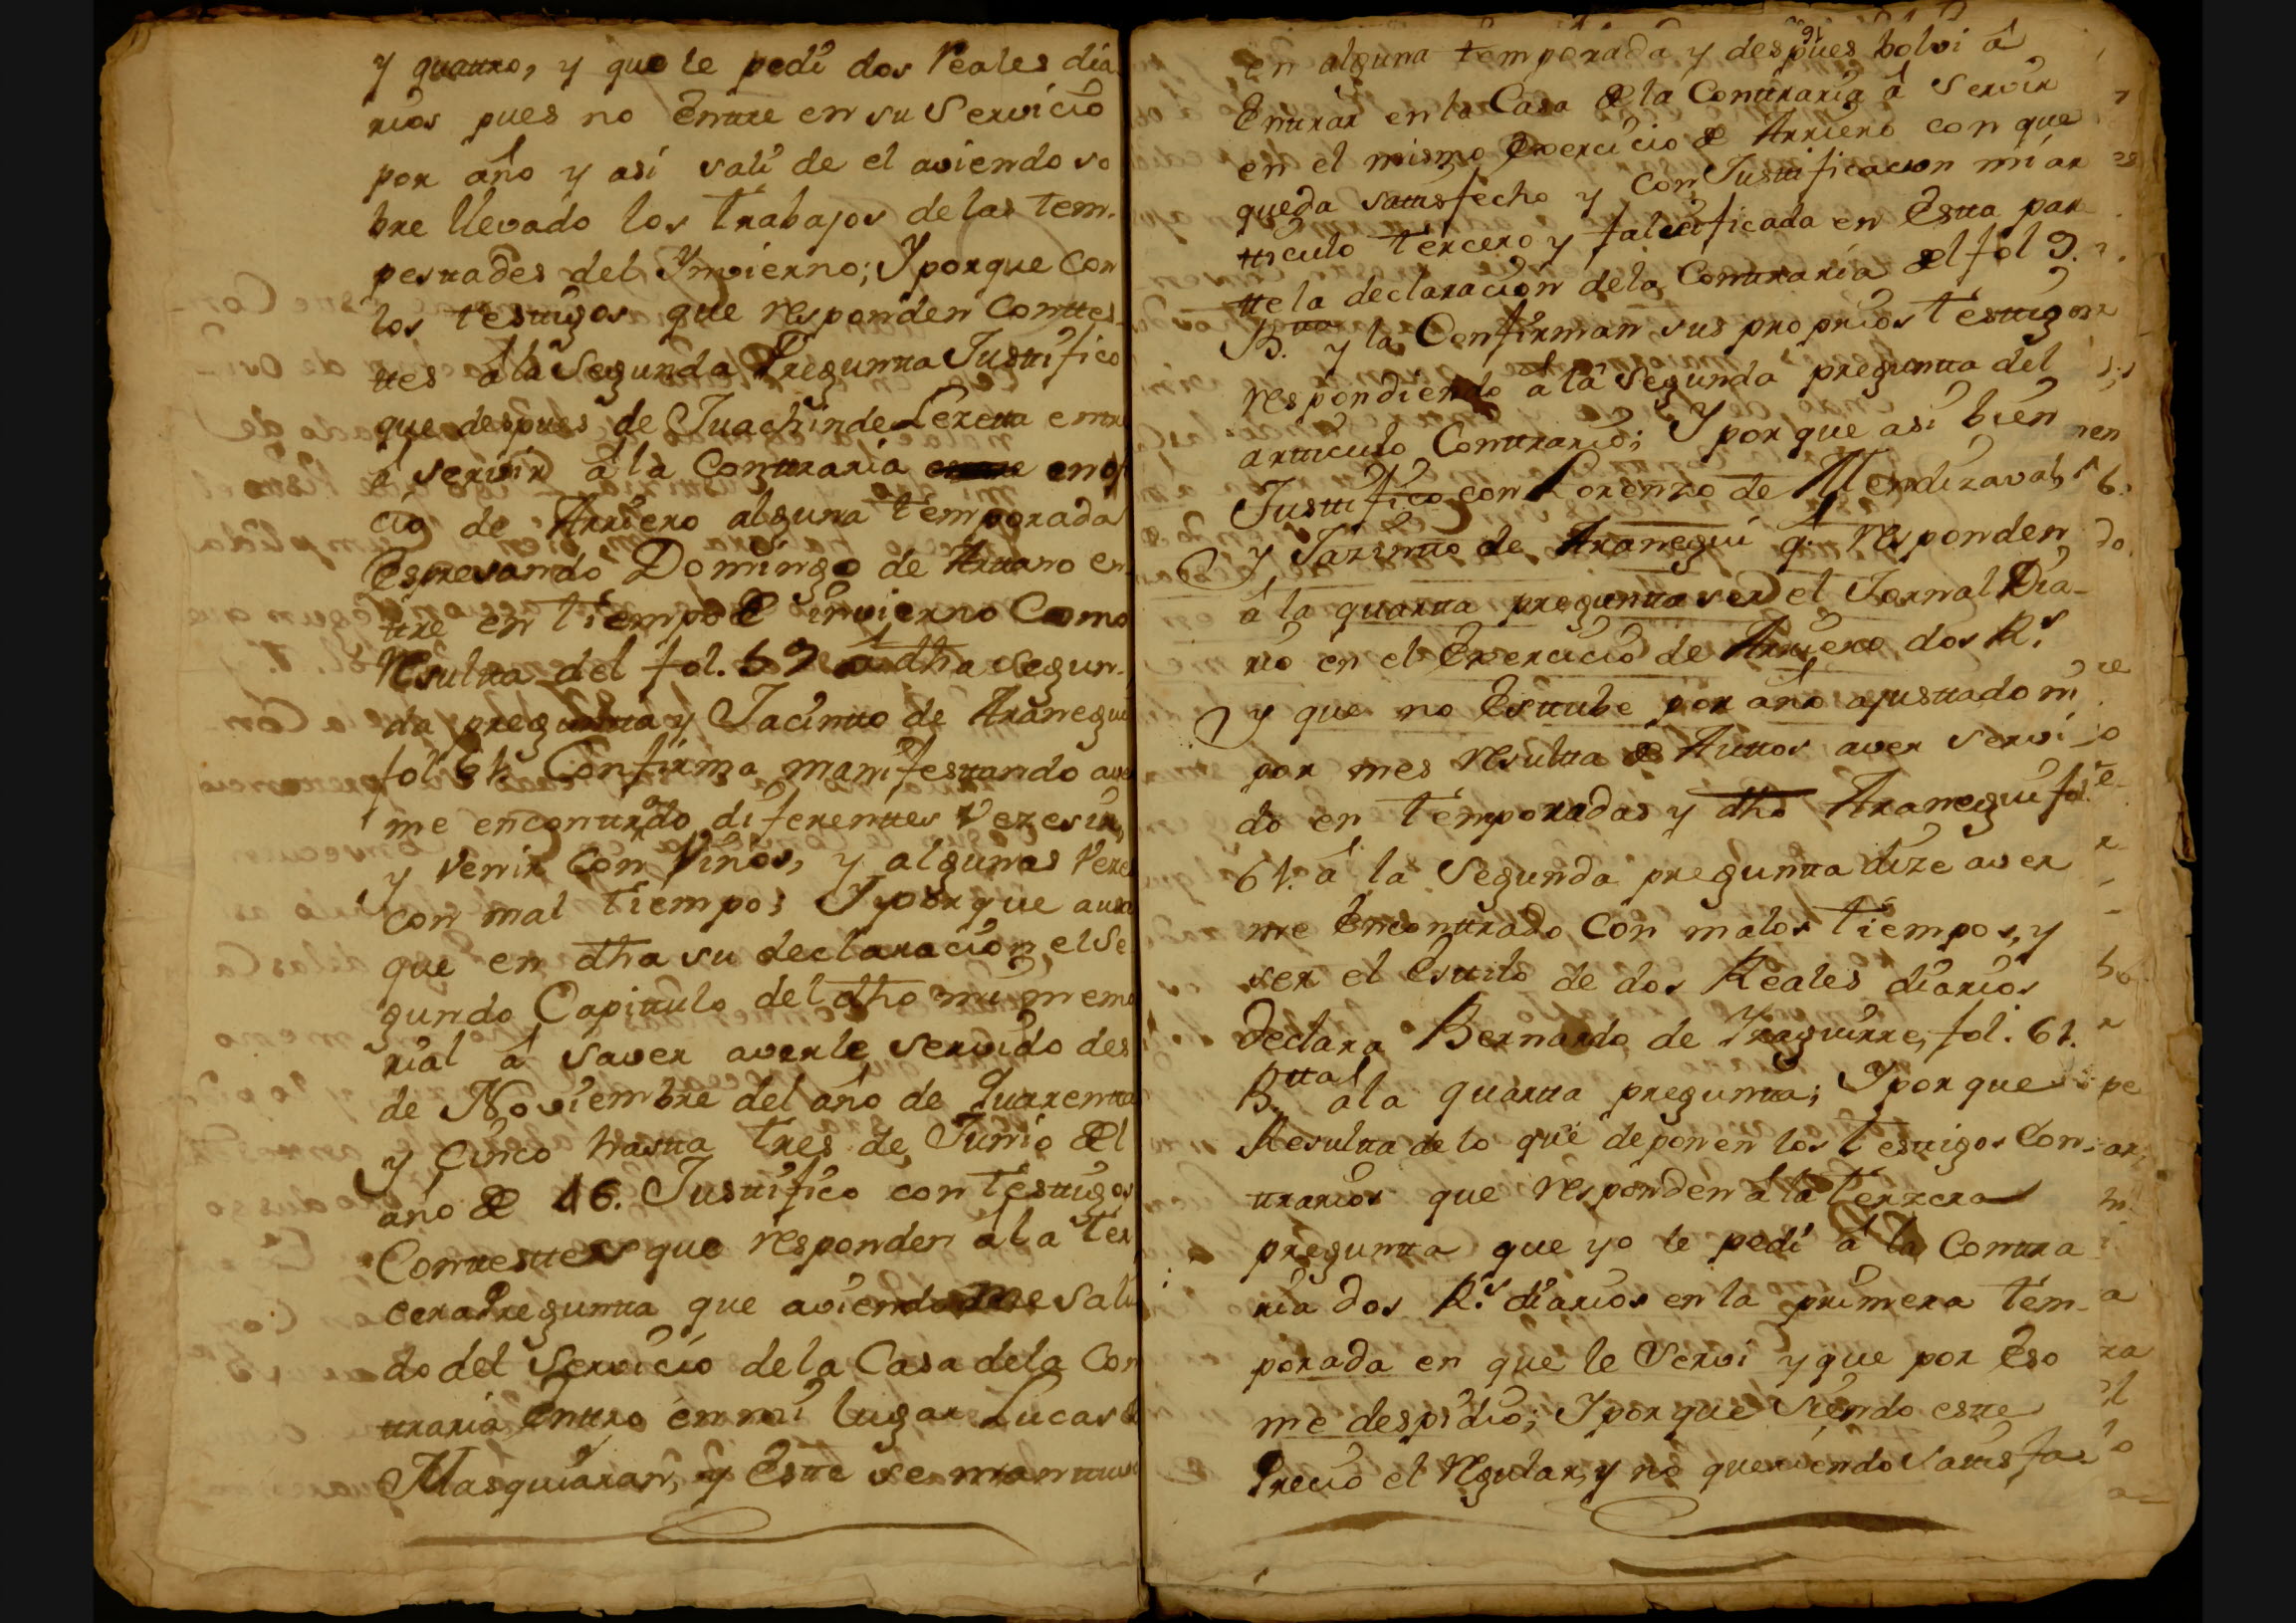 y quattro, y que le pedi dos Reales dia
rios pues no Entre en su Servicio
por año y asi sali de el aviendo so
bre llevado los trabajos de las tem-
pestades del Ymvierno; Y porque con
los testigos que responden Conttes-
ttes á la Segunda Pregunta Justifico
que despues de Juachin de Lezetta entre
á servir á la Conttraria en ofi
cio de Arriero alguna temporada
Espresando Domingo de Arttano en
ttre en tiempo de invierno Como
Resultta del fol. 59 á dha segun-
da pregunta y Jacintto de Aranegui
fol 61. Confirma manifestando aver
me encontrado diferenttes Vezes ir,
y venir con Vinos, y algunas Vezes
con mal tiempo; Y porque aun
que en dha su declaracion, el Se
gundo Capittulo del dho mi memo
rial á saver averle servido des
de Noviembre del año de Quarentta
y Cinco hasta tres de Junio del
año de 46. Justifico con testigos
Conttesttes que responden á la ter
cera Pregunta que aviendome sali
do del Servicio de la Casa de la Con
ttraria Entró en mi lugar Lucas de
Masquiaran, y Este se manttuvo
16
en alguna temporada y despues bolvi á
Enttrar en la Casa de la Conttraria á Servir
en el mismo Exercicio de Arriero con que
queda satisfecho y con Justtificacion mi ar
tticulo tercero y falcificada en Estta par
tte la declaracion de la Conttraria del fol 9.
B.tta y la Confirman sus proprios testigos
respondiendo á la Segunda pregunta del
artticulo Conttrario; Y porque asi bien
Justtifico con Lorenzo de Mendizaval,
y Jazintto de Aranegui q.e responden
á la quartta pregunta ser el Jornal Dia-
rio en el Exercicio de Arriero dos R.s
y que no Esttube por año ajusttado ni
por mes resultta de Auttos aver servi
do en temporadas y dho Aranegui fol.
61. á la Segunda pregunta dize aver
me Encontrado con malos tiempos, y
ser el Esttilo de dos Reales diarios
Declara Bernardo de Yraguirre, fol. 61.
B.tta á la quartta pregunta; Y porque
Resultta de lo que deponen los testigos Con-
ttrarios que responden á la terzera
pregunta que yo le pedi á la Conttra
ria dos R.s diarios en la primera tem-
porada en que le Servi y que por Eso
me despidio; Y porque Siendo estte
Precio el Regular, y no queriendo Satisfa